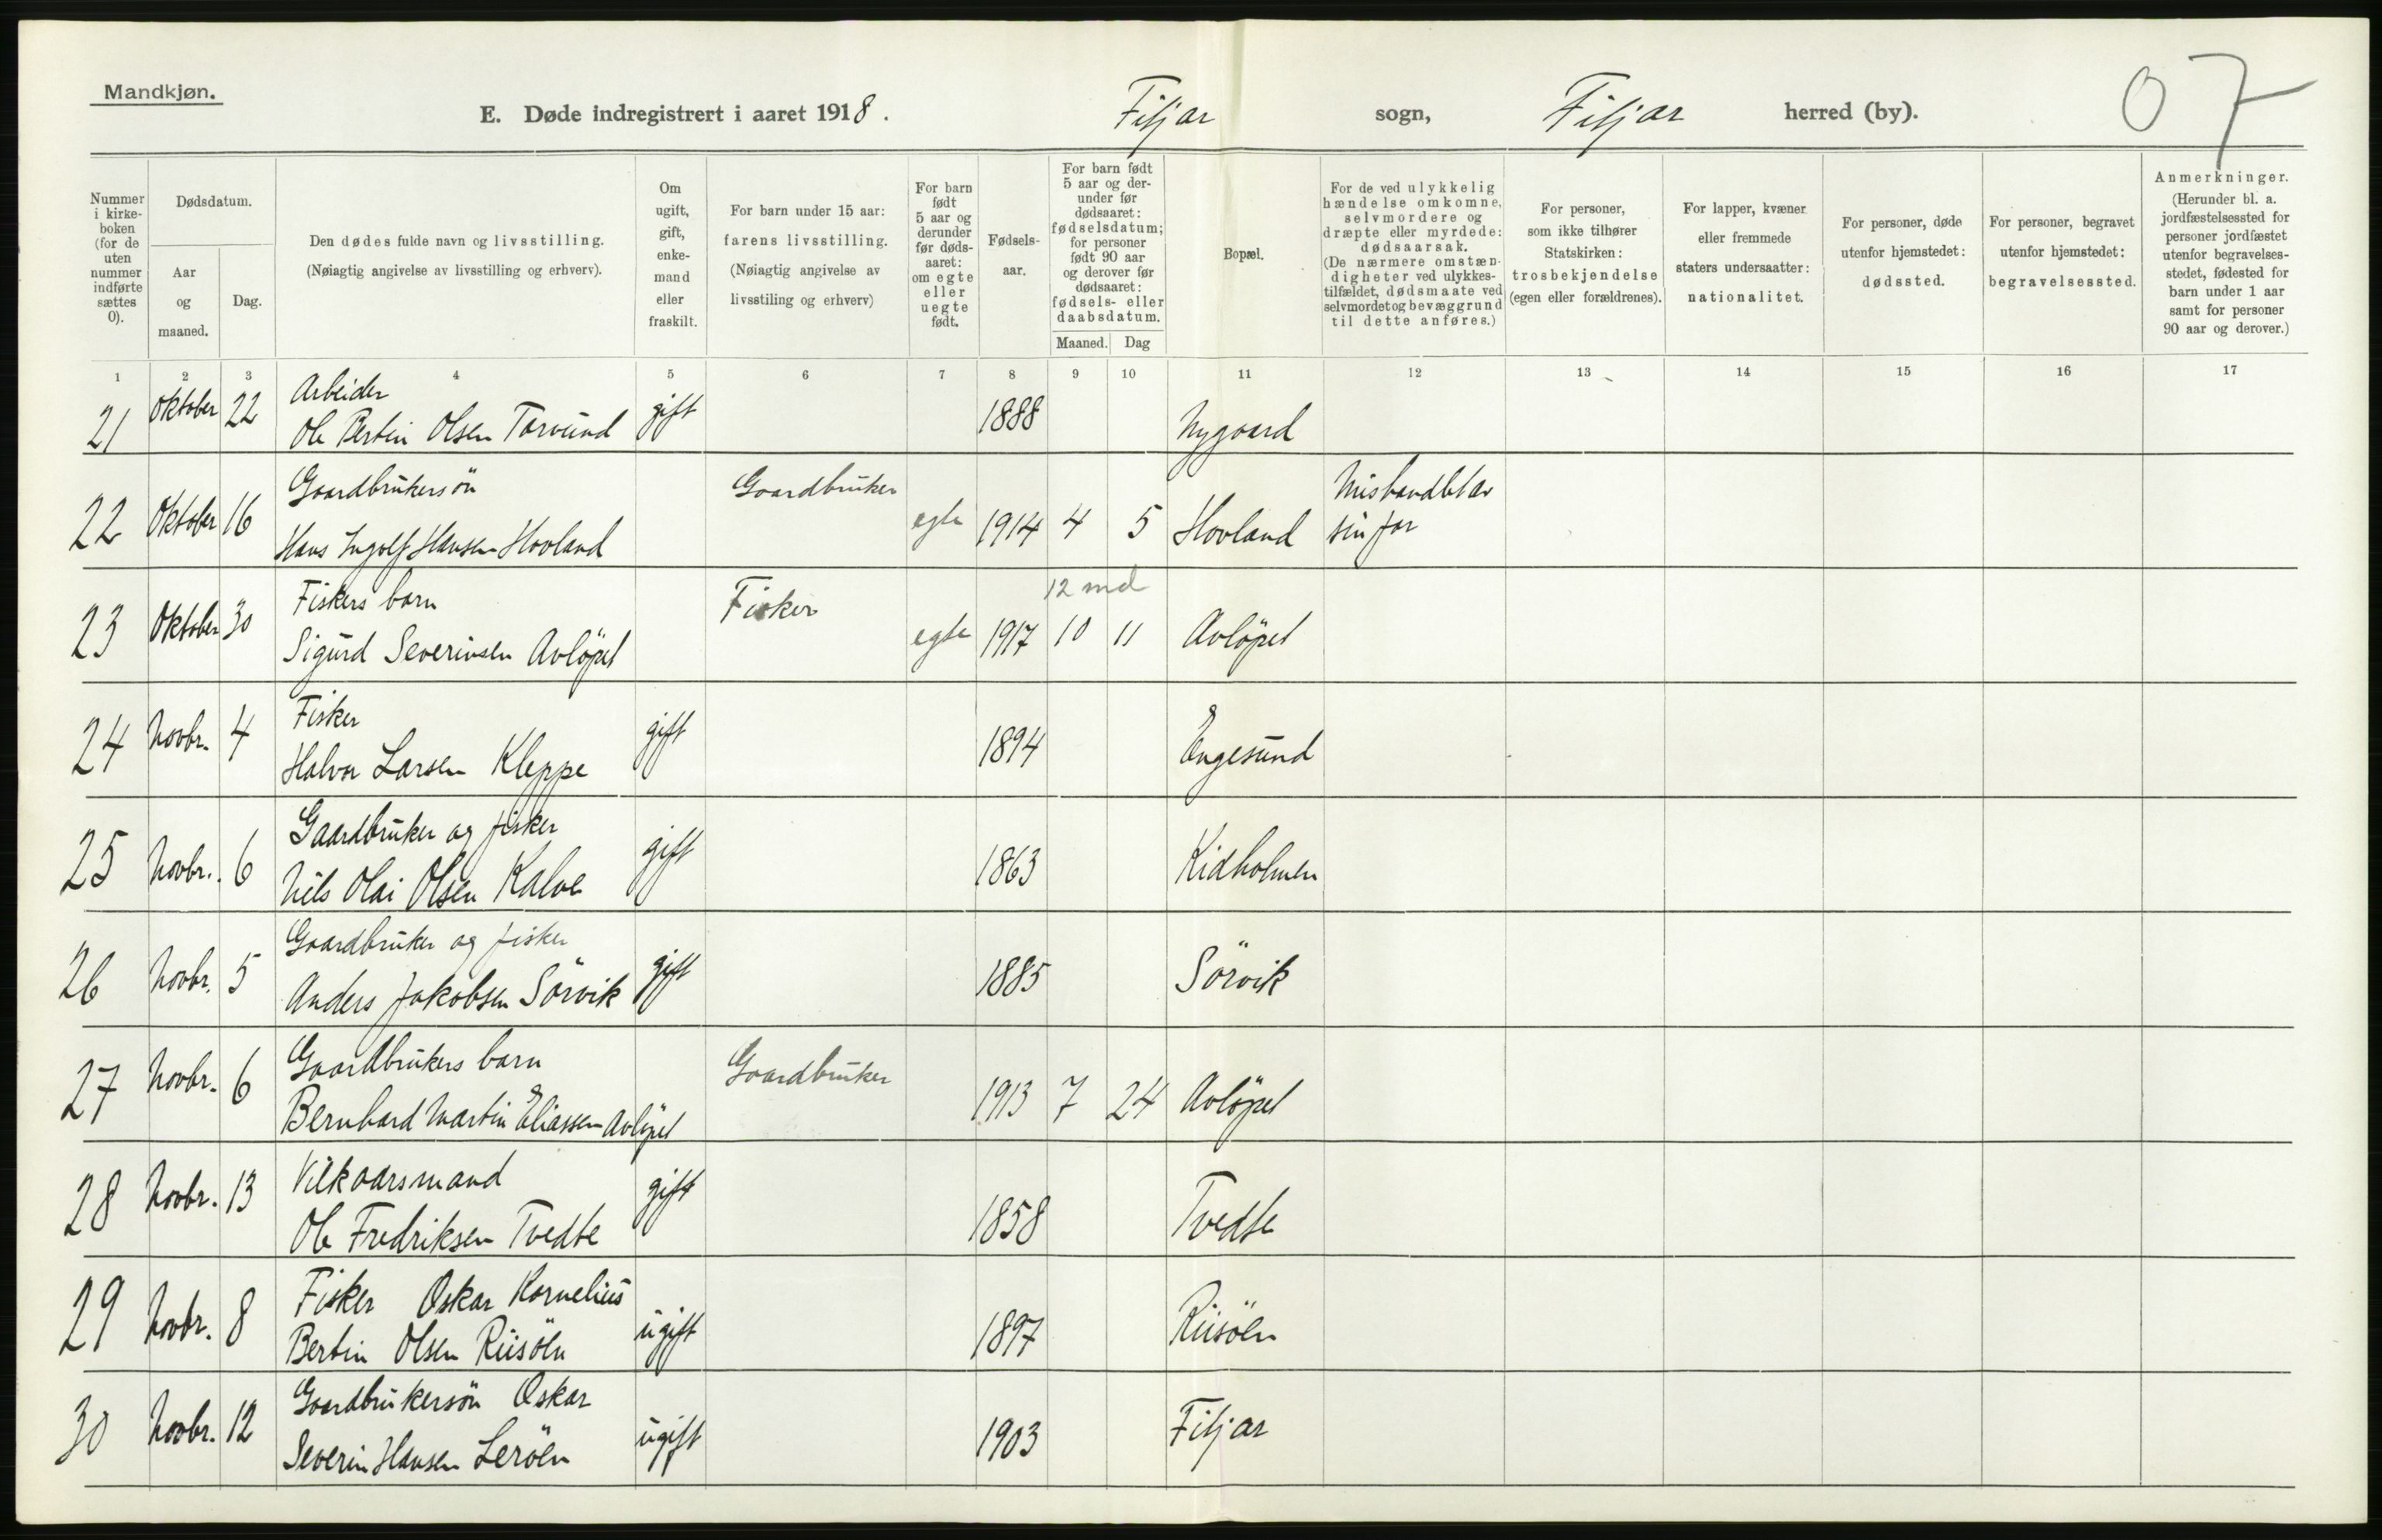 Mandkjøn.
E. Døde indregistrert i aaret 1918. Fitjar sogn, Fitjar herred (by).
07
Nummer i kirke-boken (for de uten nummer indførte sættes 0).
Dødsdatum.
Aar og maaned.
Dag.
Den dødes fulde navn og livsstilling.
(Nøiagtig angivelse av livsstilling og erhverv).
Om ugift, gift, enke-mand eller fraskilt.
For barn under 15 aar: farens livsstilling.
(Nøiagtig angivelse av livsstiling og erhverv)
For barn født 5 aar og derunder før døds-aaret: om egte eller uegte født.
Fødsels-aar.
For barn født 5 aar og der-under før dødsaaret: fødselsdatum; for personer født 90 aar og derover før dødsaaret: fødsels- eller daabsdatum.
Maaned. Dag
Bopæl.
For de ved ulykkelig hændelse omkomne, selvmordere og dræpte eller myrdede: dødsaarsak.
(De nærmere omstæn-digheter ved ulykkes-tilfældet, dødsmaate ved selvmordet og bevæggrund til dette anføres.)
For personer, som ikke tilhører Statskirken: trosbekjendelse (egen eller forældrenes).
For lapper, kvæner eller fremmede staters undersaatter: nationalitet.
For personer, døde utenfor hjemstedet: dødssted.
For personer, begravet utenfor hjemstedet: begravelsessted.
Anmerkninger.
(Herunder bl. a. jordfæstelsessted for personer jordfæstet utenfor begravelses-stedet, fødested for barn under 1 aar samt for personer 90 aar og derover.)
1 2 3 4 5 6 7 8 9 10 11 12 13 14 15 16 17
Arbeider
21 Oktober 22 Ole Bertin Olsen Tarvund gift 1888 Nygaard
Gaardbrukersön Gaardbruker Mishandlet av
22 Oktober 16 Hans Ingolf Hansen Hovland egte 1914 4 5 Hovland sin far
Fiskers barn Fisker 12 md
23 Oktober 30 Sigurd Severinsen Avlöpet egte 1917 10 11 Avlöpet
Fisker
24 Novbr. 4 Halvor Larsen Kleppe gift 1894 Engesund
Gaardbruker og fisker
25 Novbr. 6 Nils Olai Olsen Kalve gift 1863 Kidholmen
Gaardbruker og fisker
26 Novbr. 5 Anders Jakobsen Sörvik gift 1885 Sörvik
Gaardbrukers barn Gaardbruker
27 Novbr. 6 Bernhard Martin Eliassen Avlöpet 1913 7 24 Avlöpet
Vilkaarsmand
28 Novbr. 13 Ole Fredriksen Tvedte gift 1858 Tvedte
Fisker Oskar Kornelius
29 Novbr. 8 Bertin Olsen Riisöen ugift 1897 Riisöen
Gaardbrukersön Oskar
30 Novbr. 12 Severin Hansen Leröen ugift 1903 Fitjar